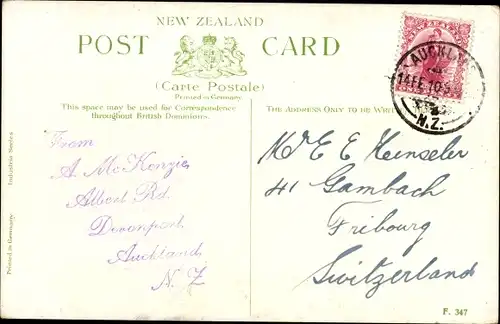 NEW ZEALAND
POST CARD
(Carte Postale)
Printed in Germany.
This space may be used for Correspondence
throughout British Dominions.
THE ADDRESS ONLY TO BE
AUCKL
14 FE 10
N.Z.
From
A. McKenzie
Albert Rd.
Devonport
Auckland
N. Z
E E Heinseler
41 Gambach
Fribourg
Switzerland
Series
Printed in Germany.
F. 347